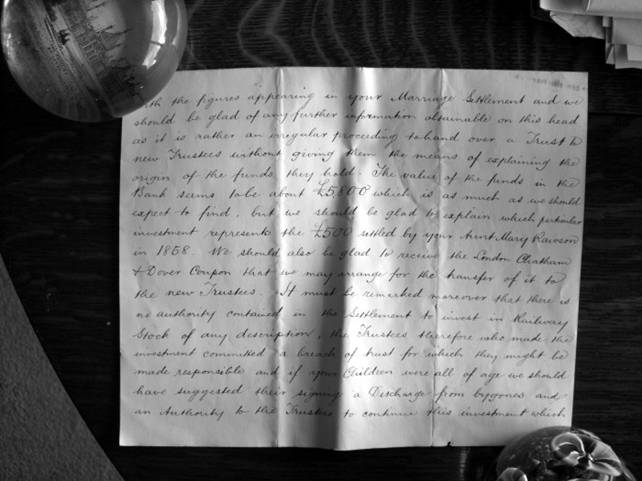 with the figures appearing in your Marriage Settlement and we
should be glad of any further information obtainable on this head
as it is rather an irregular proceeding to hand over a Trust to
new Trustees without giving them the means of explaining the
origin of the funds they hold. The value of the funds in the
Bank seems to be about £5,800 which is as much as we should
expect to find, but we should be glad to explain which particular
investment represents the £500 settled by your Aunt Mary Rawson
in 1858. We should also be glad to receive the London Chatham
& Dover Coupon that we may arrange for the transfer of it to
the new Trustees. It must be remarked moreover that there is
no authority contained in the Settlement to invest in Railway
Stock of any description, the Trustees therefore who made the
investment committed a breach of trust for which they might be
made responsible and if your Children were all of age we should
have suggested their signing a Discharge from bygones and
an Authority to the Trustees to continue this investment which